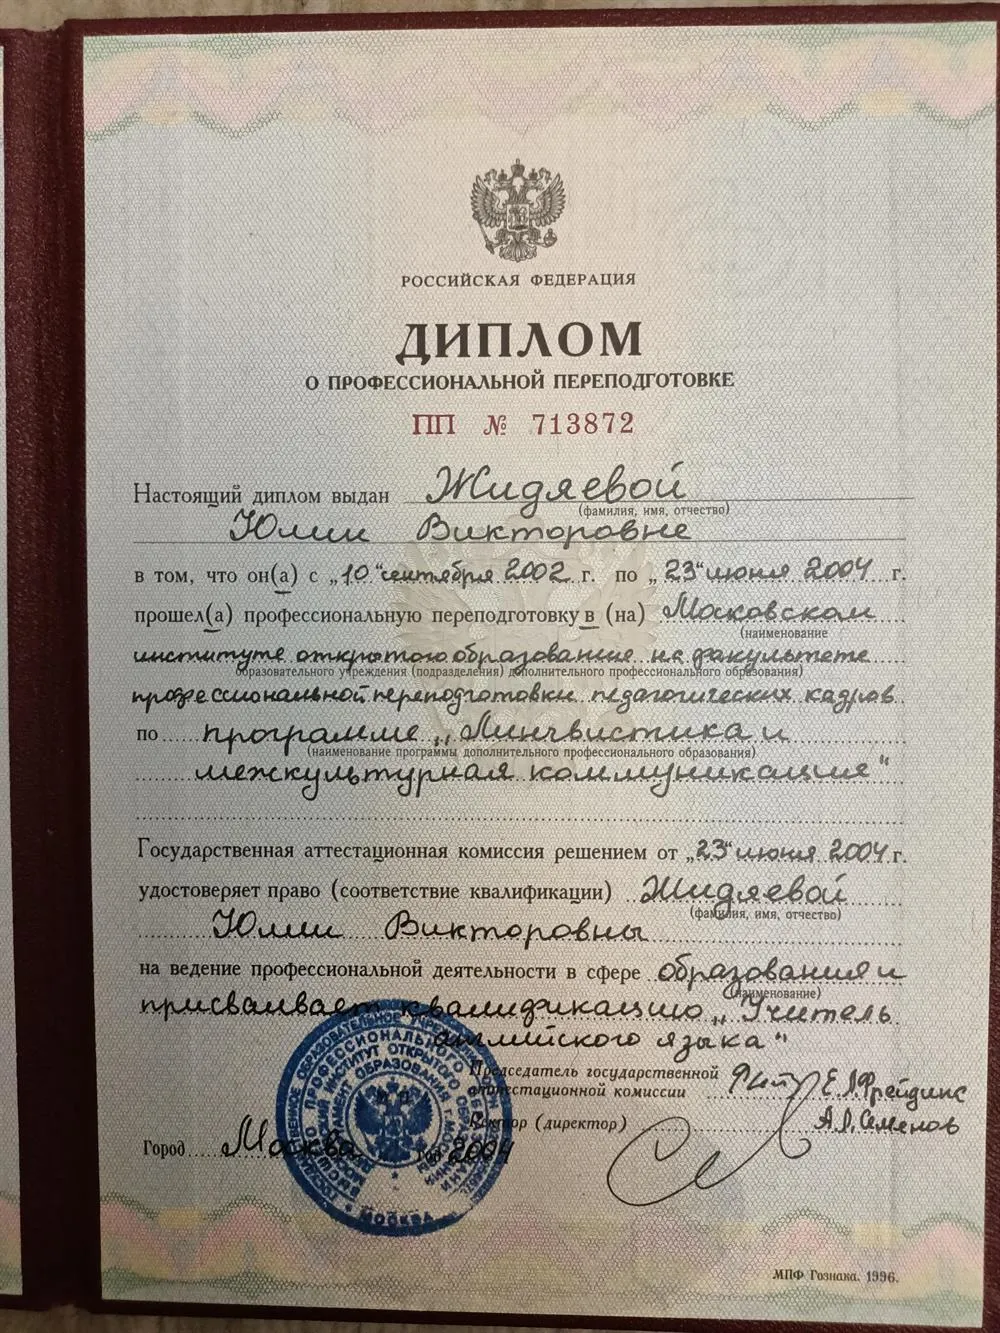 РОССИЙСКАЯ ФЕДЕРАЦИЯ
ДИПЛОМ
О ПРОФЕССИОНАЛЬНОЙ ПЕРЕПОДГОТОВКЕ
ПП № 713872
Настоящий диплом выдан Жидяевой
(фамилия, имя, отчество)
Юлии Викторовне
в том, что он(а) с „10" сентября 2002 г. по „23" июня 2004 г.
прошел(а) профессиональную переподготовку в (на) Московском
(наименование
институте открытого образования на факультете
образовательного учреждения (подразделения) дополнительного профессионального образования)
профессиональной переподготовки педагогических кадров
по программе „Лингвистика и
(наименование программы дополнительного профессионального образования)
межкультурная коммуникация"
Государственная аттестационная комиссия решением от „23" июня 2004 г.
удостоверяет право (соответствие квалификации) Жидяевой
(фамилия, имя, отчество)
Юлии Викторовны
на ведение профессиональной деятельности в сфере образования и
(наименование)
присваивает квалификацию „Учитель
английского языка"
Председатель государственной
аттестационной комиссии Е.Л.Фрейдинс
Ректор (директор) А.Л.Семенов
Город Москва год 2004
МОСКВА
МПФ Гознака. 1996.